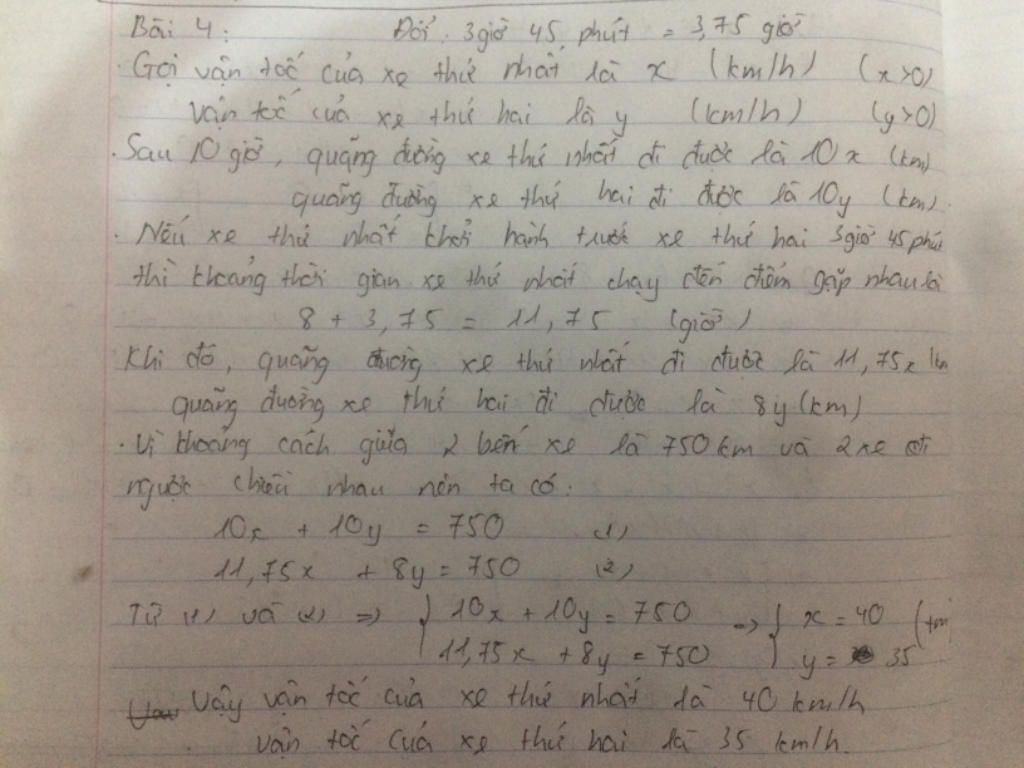 Bài 4: Đổi 3 giờ 45 phút = 3,75 giờ
Gọi vận tốc của xe thứ nhất là x (km/h) (x>0)
vận tốc của xe thứ hai là y (km/h) (y>0)
Sau 10 giờ, quãng đường xe thứ nhất đi được là 10x (km)
quãng đường xe thứ hai đi được là 10y (km).
Nếu xe thứ nhất khởi hành trước xe thứ hai 3 giờ 45 phú
thì khoảng thời gian xe thứ nhất chạy đến điểm gặp nhau là
8 + 3,75 = 11,75 (giờ)
Khi đó, quãng đường xe thứ nhất đi được là 11,75x (km
quãng đường xe thứ hai đi được là 8y (km)
Vì khoảng cách giữa 2 bến xe là 750 km và 2 xe đi
ngược chiều nhau nên ta có:
10x + 10y = 750 (1)
11,75x + 8y = 750 (2)
Từ (1) và (2) => { 10x + 10y = 750 => { x = 40 (tm
11,75x + 8y = 750 y = 35
Vậy vận tốc của xe thứ nhất là 40 km/h
vận tốc của xe thứ hai là 35 km/h.